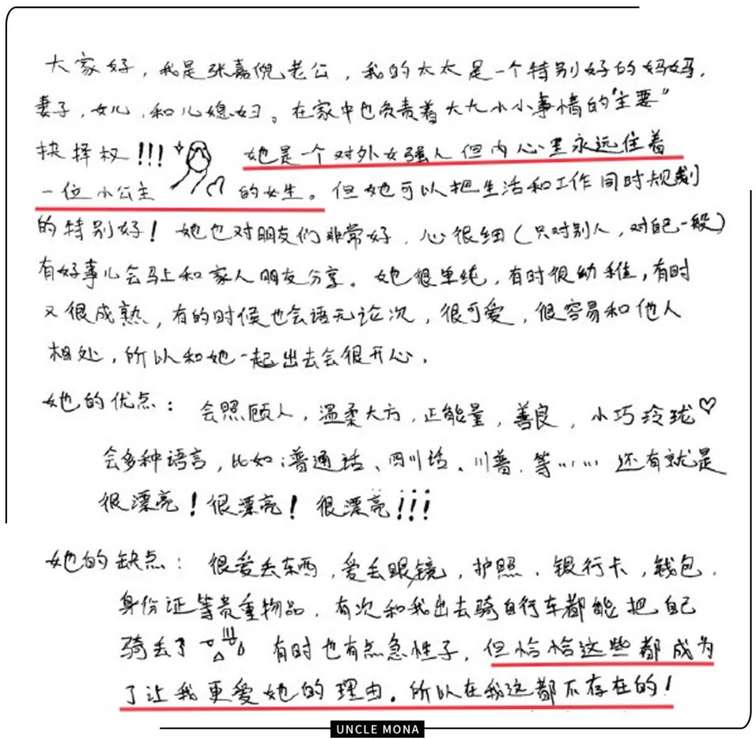 大家好，我是张嘉倪老公，我的太太是一个特别好的妈妈，
妻子，女儿，和儿媳妇。在家中也负责着大大小小事情的"主要"
抉择权!!! 她是一个对外女强人但内心里永远住着
一位小公主 的女生。但她可以把生活和工作同时规划
的特别好！她也对朋友们非常好，心很细（只对别人，对自己一般）
有好事儿会马上和家人朋友分享。她很单纯，有时很幼稚，有时
又很成熟，有的时候也会语无论次，很可爱，很容易和他人
相处，所以和她一起出去会很开心，
她的优点：会照顾人，温柔大方，正能量，善良，小巧玲珑♡
会多种语言，比如：普通话、四川话、川普，等…… 还有就是
很漂亮！很漂亮！很漂亮!!!
她的缺点：很爱丢东西，爱丢眼镜，护照，银行卡，钱包，
身份证等贵重物品，有次和我出去骑自行车都能把自己
骑丢了 有时也有点急性子，但恰恰这些都成为
了让我更爱她的理由。所以在我这都不存在的！
UNCLE MONA